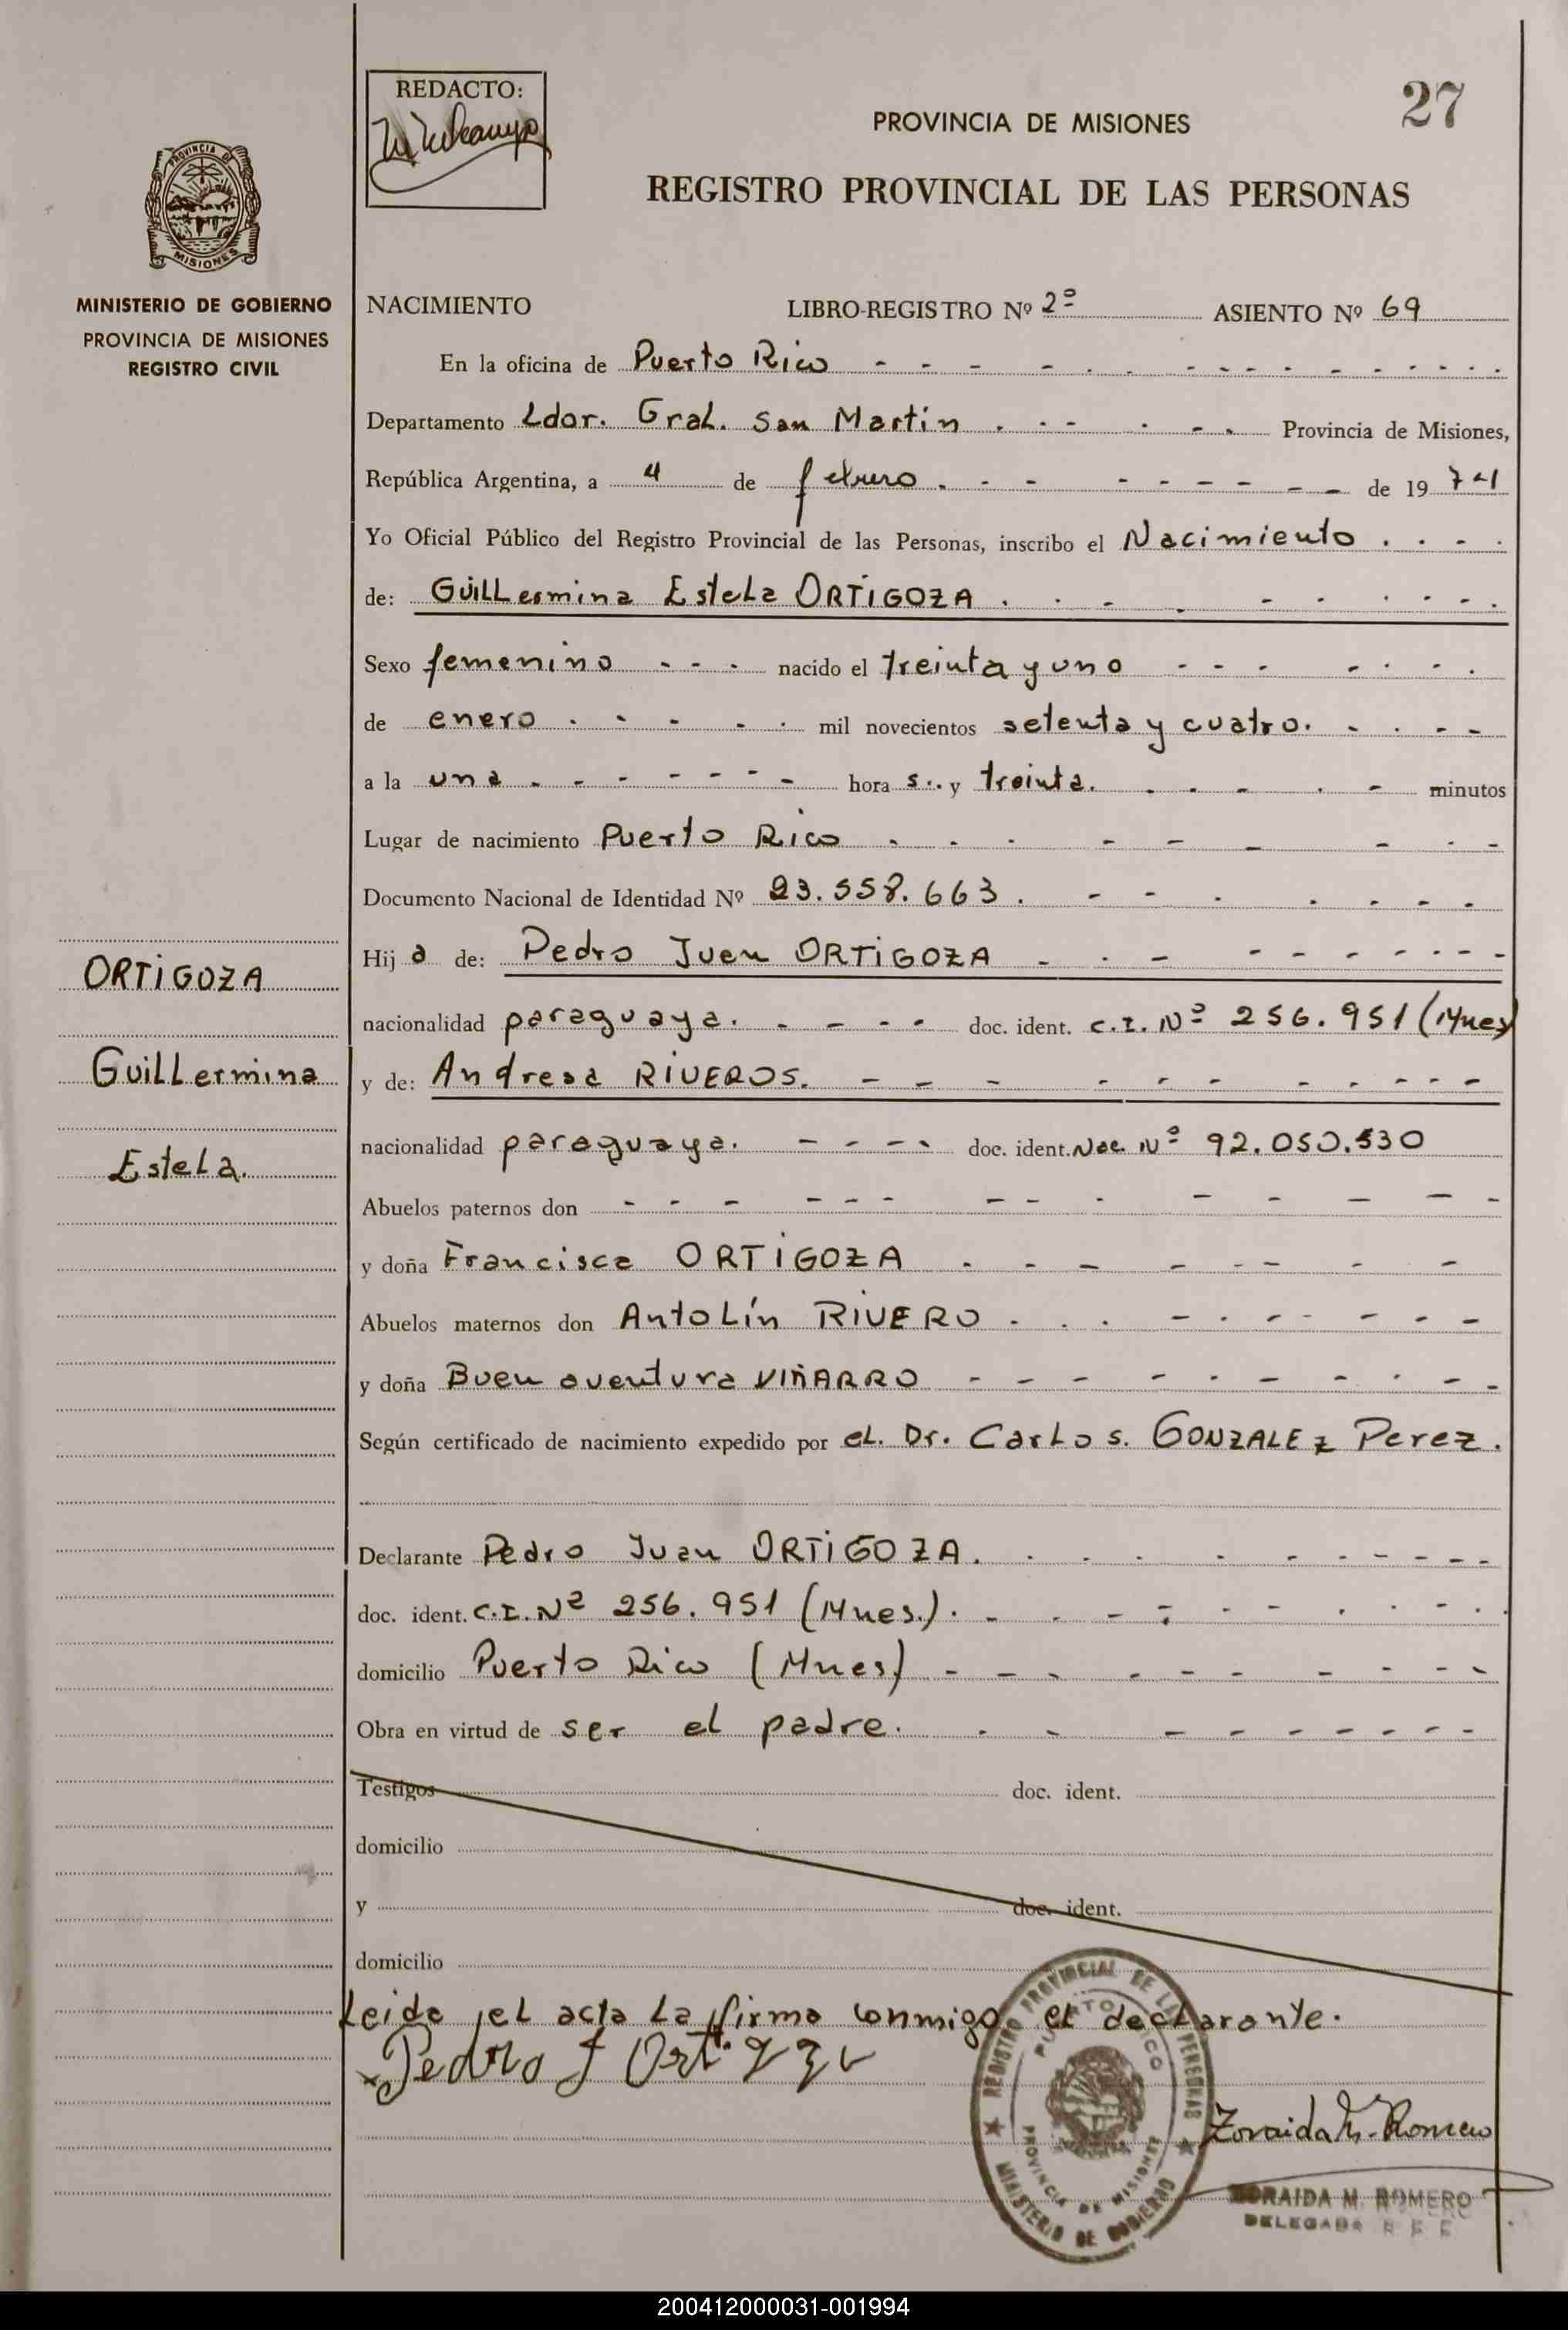 REDACTO:
27
PROVINCIA DE MISIONES
REGISTRO PROVINCIAL DE LAS PERSONAS
PROVINCIA DE
MISIONES
MINISTERIO DE GOBIERNO
PROVINCIA DE MISIONES
REGISTRO CIVIL
NACIMIENTO LIBRO-REGISTRO Nº 2º ASIENTO Nº 69
En la oficina de Puerto Rico
Departamento Ldor. Gral. San Martín Provincia de Misiones,
República Argentina, a 4 de febrero de 1974
Yo Oficial Público del Registro Provincial de las Personas, inscribo el Nacimiento
de: Guillermina Estela ORTIGOZA
Sexo femenino nacido el treinta y uno
de enero mil novecientos setenta y cuatro.
a la una hora s. y treinta. minutos
Lugar de nacimiento Puerto Rico
Documento Nacional de Identidad Nº 23.558.663.
Hij a de: Pedro Juan ORTIGOZA
nacionalidad paraguaya. doc. ident. C.I. Nº 256.951 (Mnes)
y de: Andresa RIVEROS.
nacionalidad paraguaya. doc. ident. Nº 92.050.530
Abuelos paternos don
y doña Francisca ORTIGOZA
Abuelos maternos don Antolín RIVERO
y doña Buenaventura VIÑARRO
Según certificado de nacimiento expedido por el. Dr. Carlos. GONZALEZ Perez.
Declarante Pedro Juan ORTIGOZA.
doc. ident. C.I. Nº 256.951 (Mnes.).
domicilio Puerto Rico (Mnes)
Obra en virtud de ser el padre.
Testigos doc. ident.
domicilio
y doc. ident.
domicilio
Leida el acta la firma conmigo el declarante.
Pedro J Ortigoza
ORTIGOZA
Guillermina
Estela.
REGISTRO PROVINCIAL DE LAS PERSONAS
PUERTO RICO
PROVINCIA DE MISIONES
MINISTERIO DE GOBIERNO
Zoraida M. Romero
ZORAIDA M. ROMERO
DELEGADA
200412000031-001994